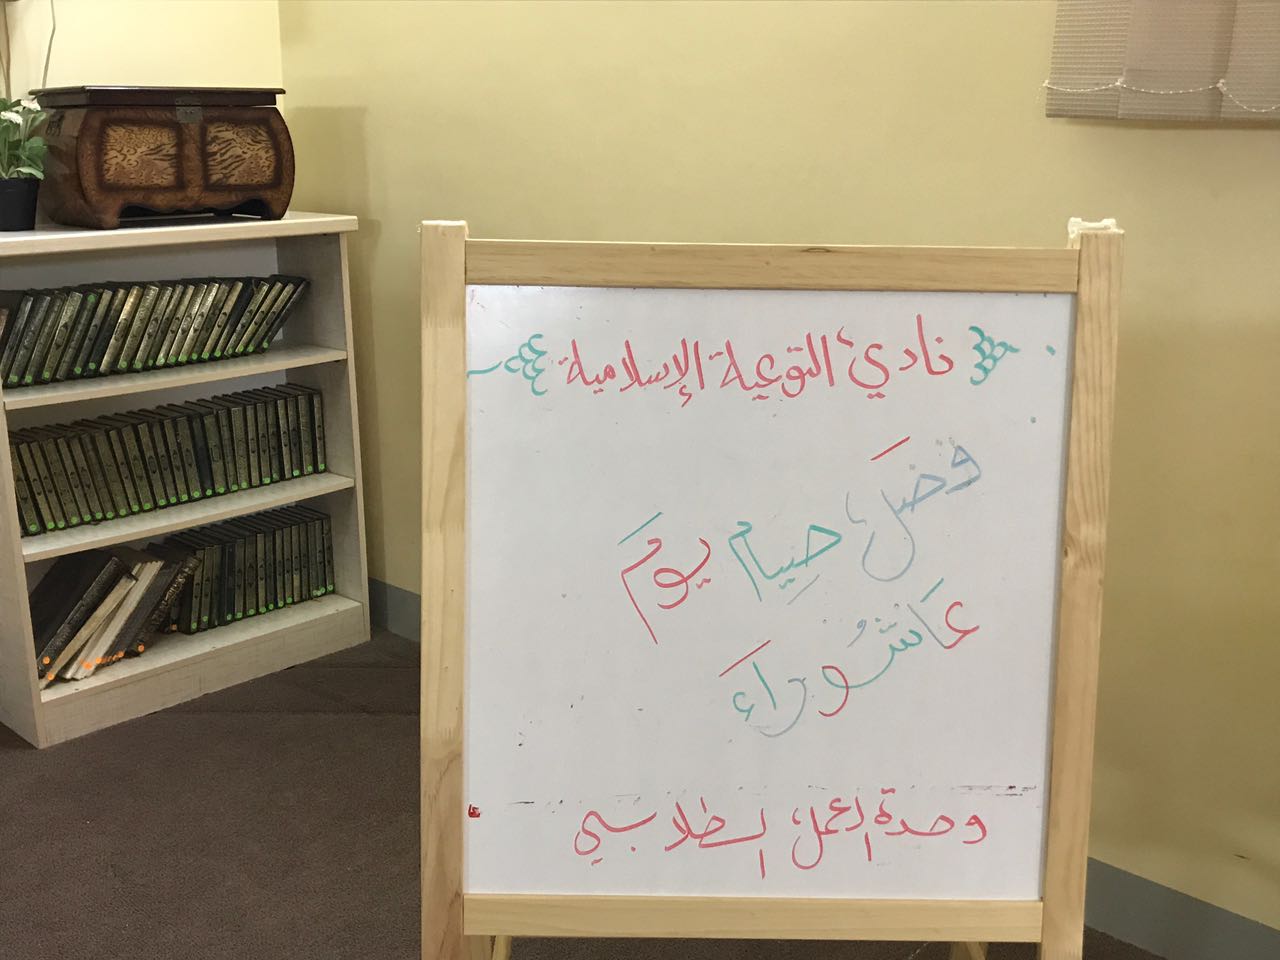 نادي التوعية الإسلامية
فضل صِيام يومَ
عَاشُورَاءَ
وحدة العمل الطلابي